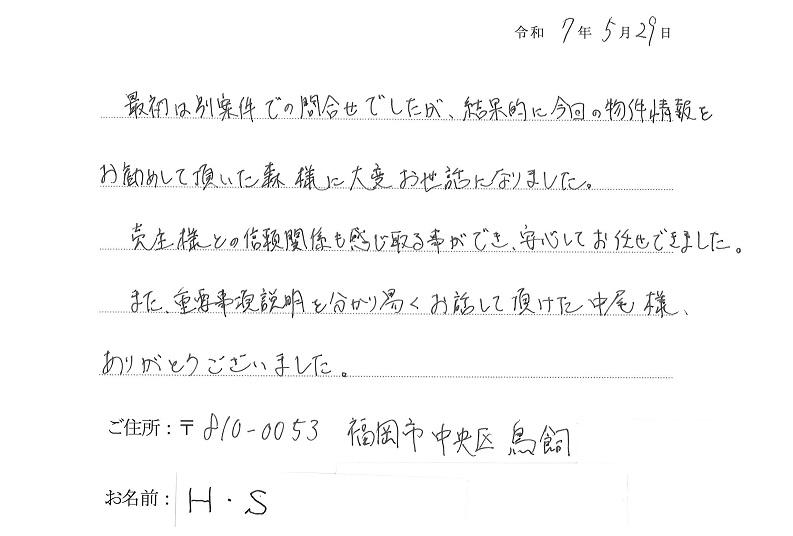 令和 7年 5月29日
最初は別案件での問合せでしたが、結果的に今回の物件情報を
お勧めして頂いた森様に大変お世話になりました。
売主様との信頼関係も感じ取る事ができ、安心してお任せできました。
また、重要事項説明を分かり易くお話して頂けた中尾様、
ありがとうございました。
ご住所：〒810-0053 福岡市中央区鳥飼
お名前：H・S